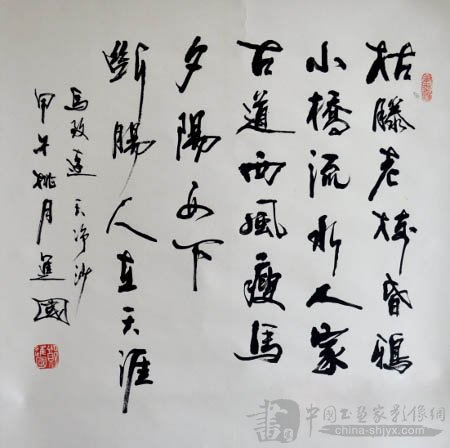 枯藤老树昏鴉
小橋流水人家
古道西風瘦馬
夕陽西下
斷腸人在天涯
馬致遠 天净沙
甲午桃月進國
中国书画家影像網
china-shjyx.com